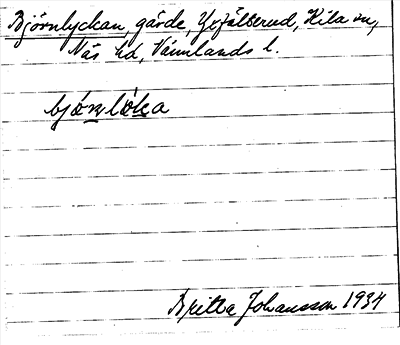 Björnlyckan, gärde, Yxfallerud, Kila sn,
Näs hd, Värmlands l.
bjö̀nlö̀ka
Britta Johansson 1934